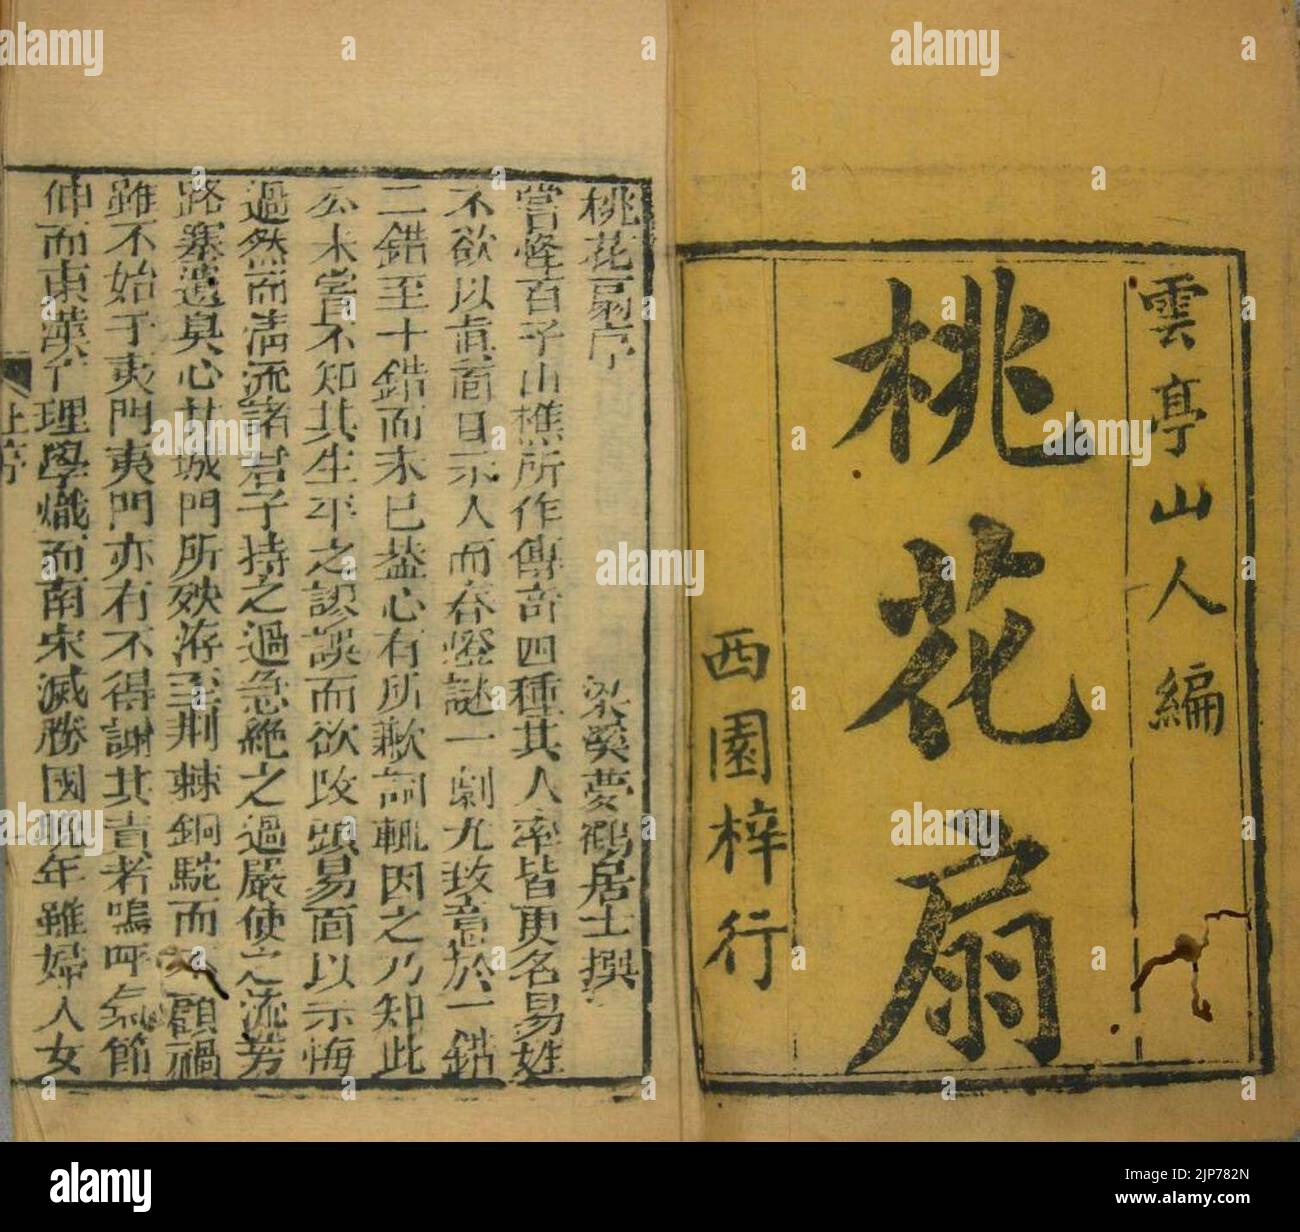 雲亭山人編
桃花扇
西園梓行
桃花扇序
梁溪夢鶴居士撰
嘗怪百子山樵所作傳奇四種其人率皆更名易姓
不欲以真面目示人而春燈謎一劇尤致意於一錯
二錯至十錯而未已蓋心有所歉詞輒因之乃知此
公未嘗不知其生平之謬誤而欲改頭易面以示悔
過然而清流諸君子持之過急絶之過嚴使之流芳
路塞遺臭心甘城門所殃洊至荆棘銅駝而不顧禍
雖不始于夷門夷門亦有不得謝其責者嗚呼氣節
伸而東漢亡理學熾而南宋滅勝國晚年雖婦人女
上序
alamy
Image ID: 2JP782N
www.alamy.com